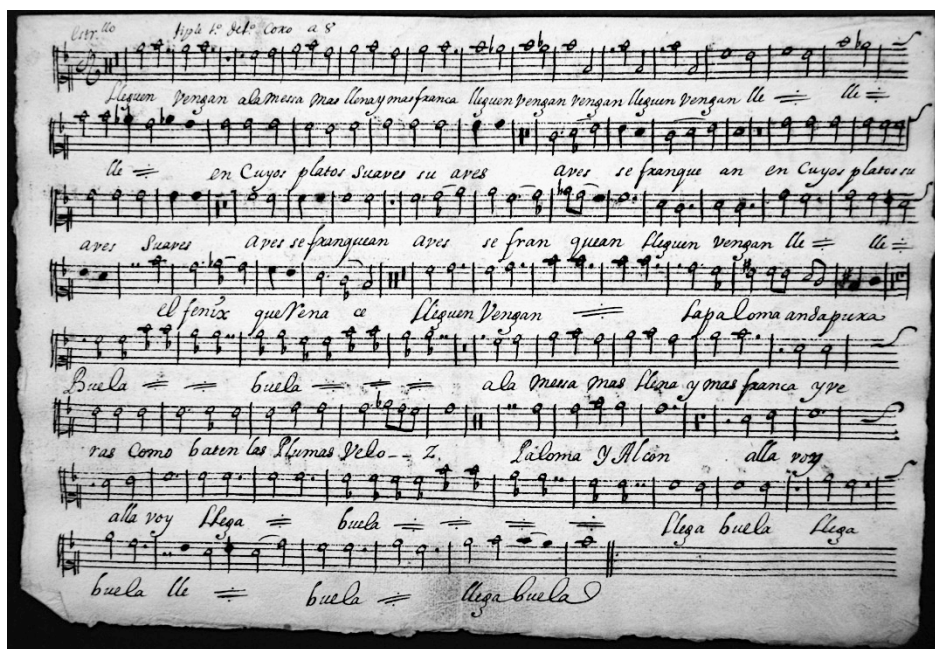 Estr.llo tiple 1.º del 1.º Coxo a 8
Lleguen vengan ala messa mas llena y mas franca lleguen vengan vengan lleguen vengan lle = lle =
lle = en Cuyos platos Suaves su aves aves se franque an en Cuyos platos su
aves Suaves aves se franquean aves se fran quean lleguen vengan lle = lle =
el fenix que Rena ce lleguen Vengan = la paloma anda pura
Buela = = buela = = = ala messa mas llena y mas franca y ve
ras Como baten las Plumas Velo - - Z. Paloma Y Alcon alla voy
alla voy llega = buela = = = = llega buela llega
buela lle = buela = llega buela